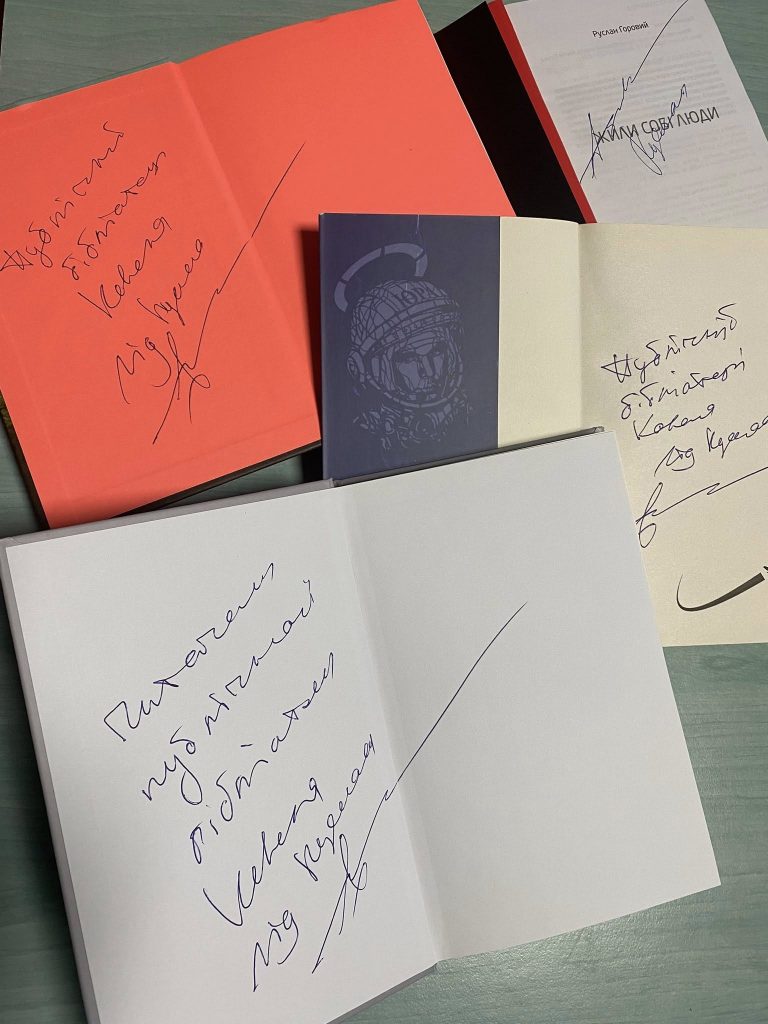 Публічній
бібліотеці
Ковеля
від Руслана
Руслан Горовий
ЖИЛИ СОБІ ЛЮДИ
Публічній
бібліотеці
Ковеля
від Руслана
Читачам
публічної
бібліотеки
Ковеля
від Руслана